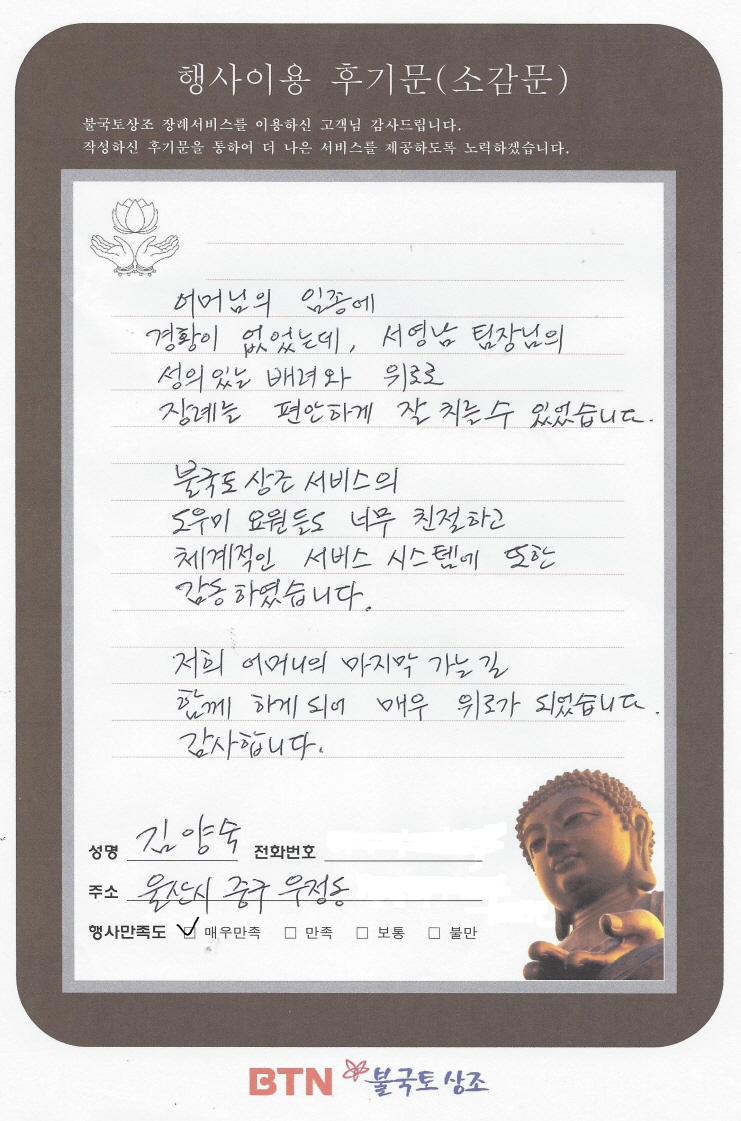 행사이용 후기문(소감문)
불국토상조 장례서비스를 이용하신 고객님 감사드립니다.
작성하신 후기문을 통하여 더 나은 서비스를 제공하도록 노력하겠습니다.
어머님의 임종에
경황이 없었는데, 서영남 팀장님의
성의있는 배려와 위로로
장례를 편안하게 잘 치를수 있었습니다.
불국토 상조 서비스의
도우미 요원들도 너무 친절하고
체계적인 서비스 시스템에 또한
감동하였습니다.
저희 어머니의 마지막 가는길
함께 하게되어 매우 위로가 되었습니다.
감사합니다.
성명 김양숙 전화번호
주소 울산시 중구 우정동
행사만족도 ☑ 매우만족 □ 만족 □ 보통 □ 불만
BTN 불국토상조